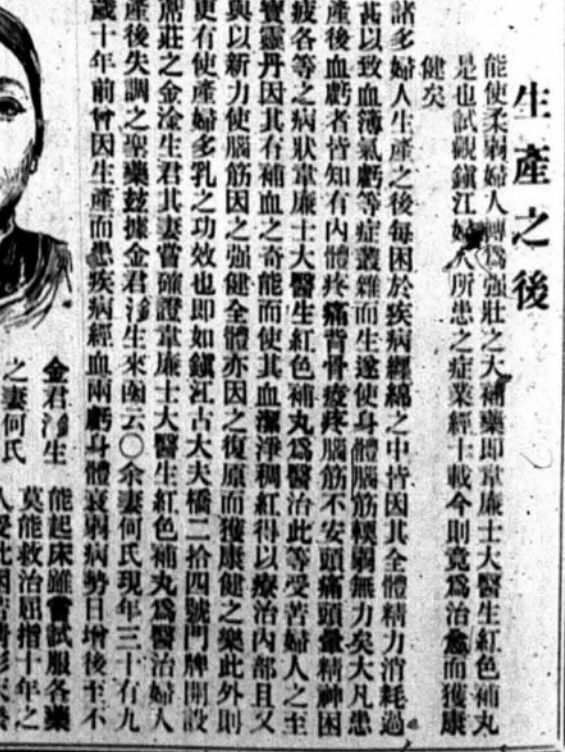 生產之後
能使柔弱婦人轉爲强壯之大補藥即韋廉士大醫生紅色補丸
是也試觀鎭江婦人所患之症業經十載今則竟爲治愈而獲康
健矣
諸多婦人生產之後每困於疾病纏綿之中皆因其全體精力消耗過
甚以致血薄氣虧等症叢雜而生遂使身體腦筋輭弱無力矣大凡患
產後血虧者皆知有內體疼痛背骨痠疼腦筋不安頭痛頭暈精神困
疲各等之病狀韋廉士大醫生紅色補丸爲醫治此等受苦婦人之至
寶靈丹因其有補血之奇能而使其血潔淨稠紅得以療治內部且又
與以新力使腦筋因之强健全體亦因之復原而獲康健之樂此外則
更有使產婦多乳之功效也即如鎭江古大夫橋二拾四號門牌開設
莊之金淦生君其妻嘗確證韋廉士大醫生紅色補丸爲醫治婦人
產後失調之聖藥玆據金君淦生來函云〇余妻何氏現年三十有九
歲十年前曾因生產而患疾病經血兩虧身體衰弱病勢日增後至不
金君淦生
之妻何氏
能起床雖嘗試服各藥
莫能救治屈指十年之